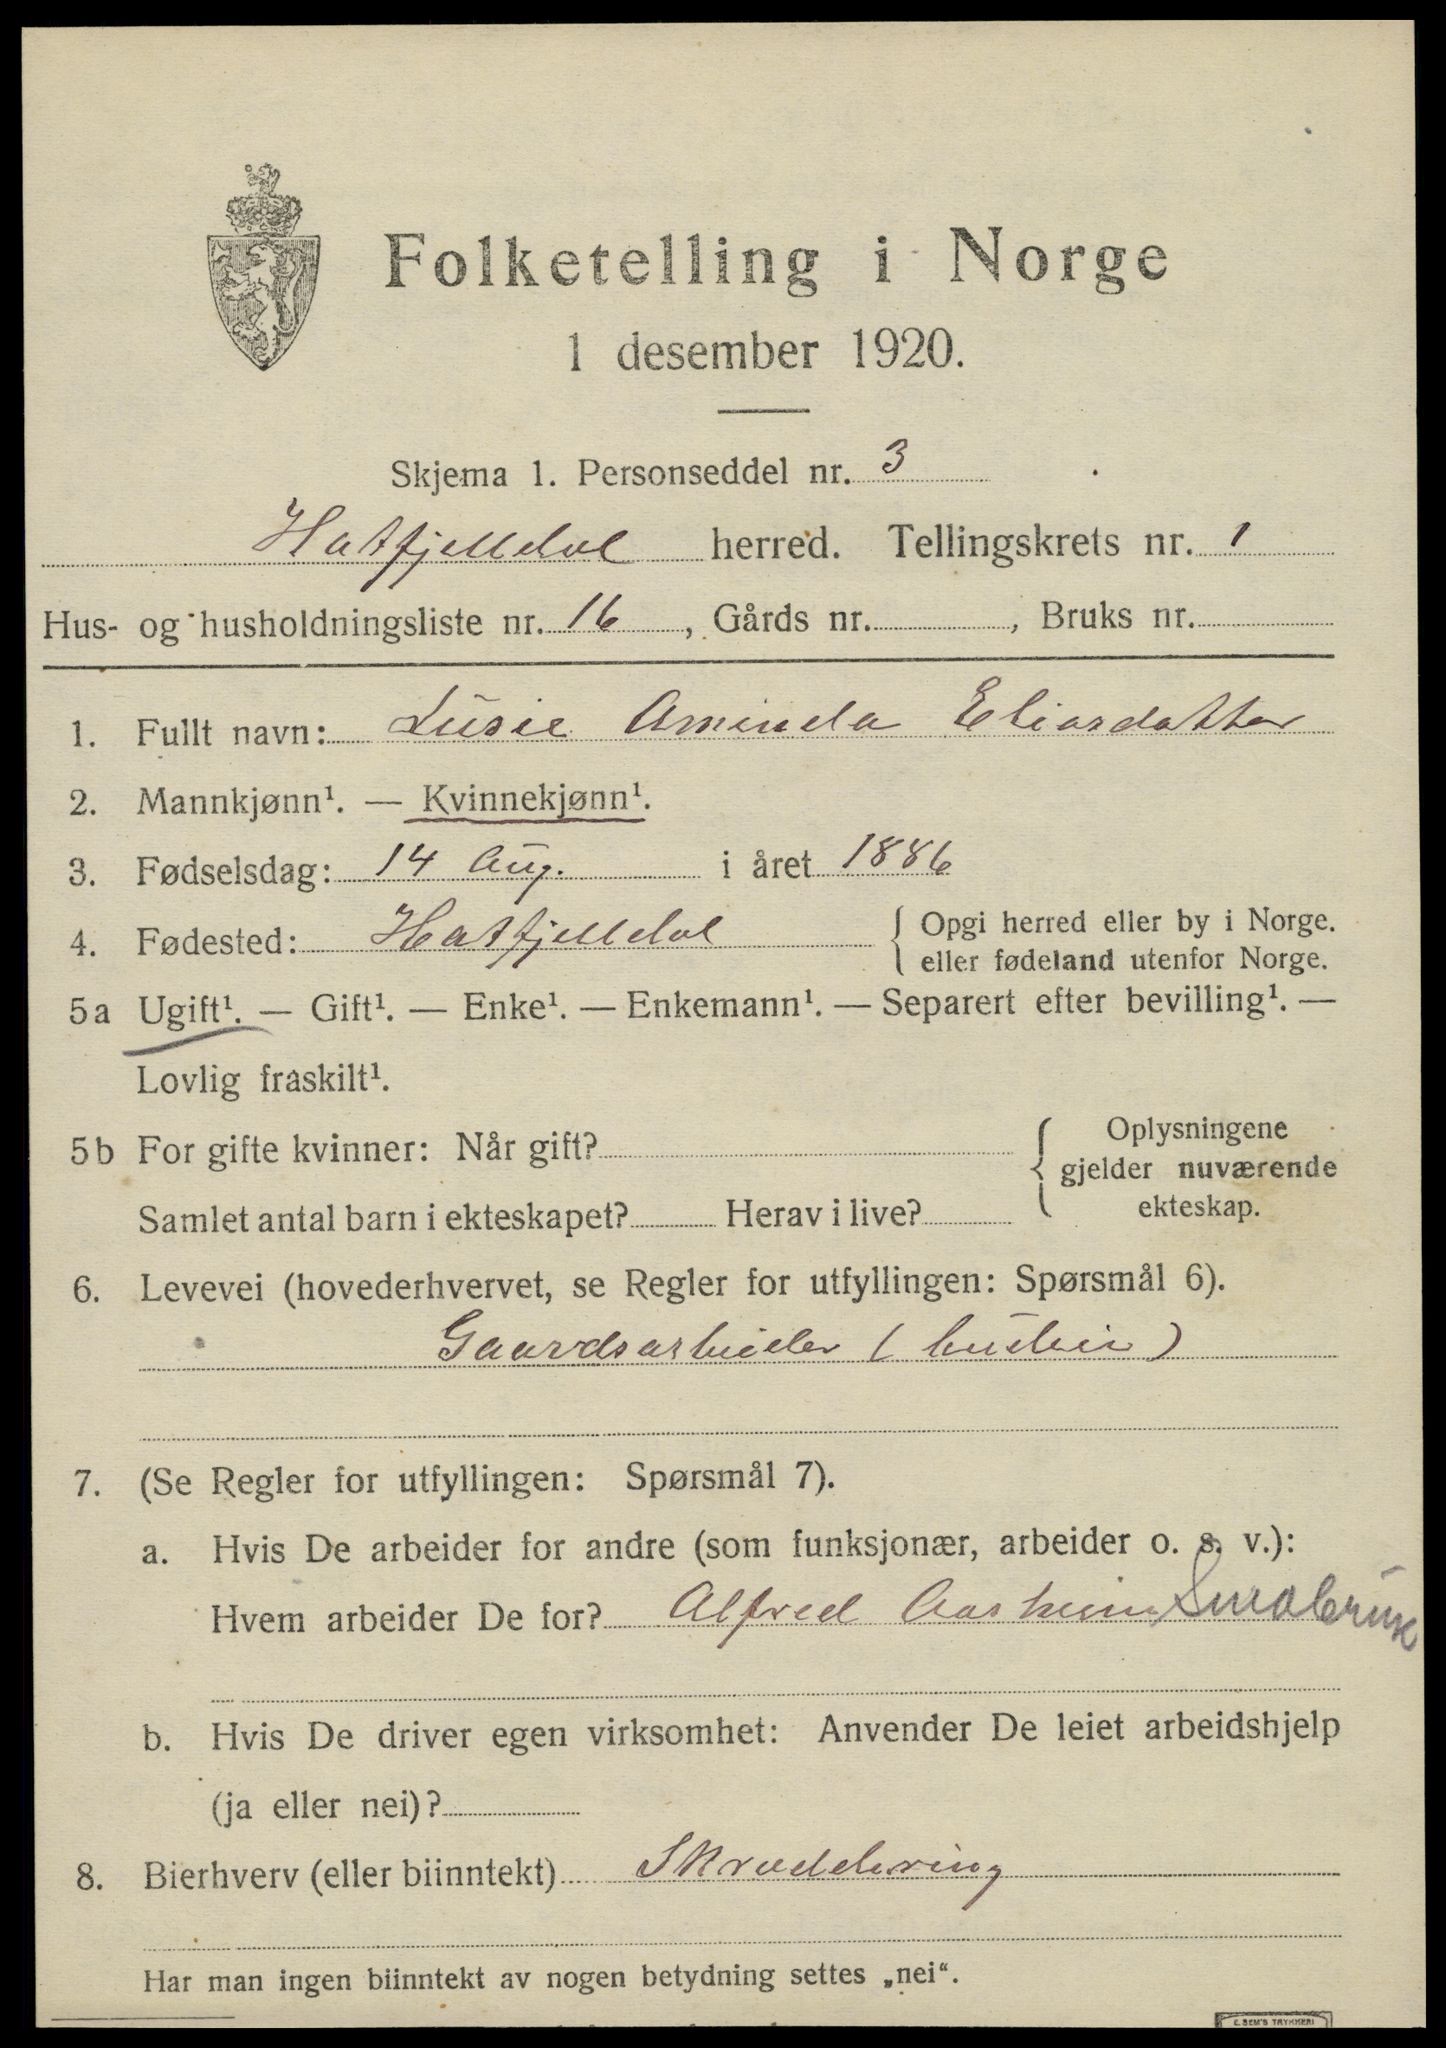 Folketelling i Norge
1 desember 1920.
Skjema 1. Personseddel nr. 3
Hatfjelldal herred. Tellingskrets nr. 1
Hus- og husholdningsliste nr. 16, Gårds nr. , Bruks nr.
1. Fullt navn: Lusie Aminda Eliasdatter
2. Mannkjønn¹. — Kvinnekjønn¹.
3. Fødselsdag: 14 Aug. i året 1886
4. Fødested: Hatfjelldal { Opgi herred eller by i Norge.
eller fødeland utenfor Norge.
5a Ugift¹. — Gift¹. — Enke¹. — Enkemann¹. — Separert efter bevilling¹. —
Lovlig fraskilt¹.
5b For gifte kvinner: Når gift?
Samlet antal barn i ekteskapet? Herav i live?
{ Oplysningene
gjelder nuværende
ekteskap.
6. Levevei (hovederhvervet, se Regler for utfyllingen: Spørsmål 6).
Gaardsarbeider (
)
7. (Se Regler for utfyllingen: Spørsmål 7).
a. Hvis De arbeider for andre (som funksjonær, arbeider o. s. v.):
Hvem arbeider De for? Alfred Aasheim Småbruk
b. Hvis De driver egen virksomhet: Anvender De leiet arbeidshjelp
(ja eller nei)?
8. Bierhverv (eller biinntekt) Skreddering
Har man ingen biinntekt av nogen betydning settes „nei“.
E. SEM'S TRYKKERI